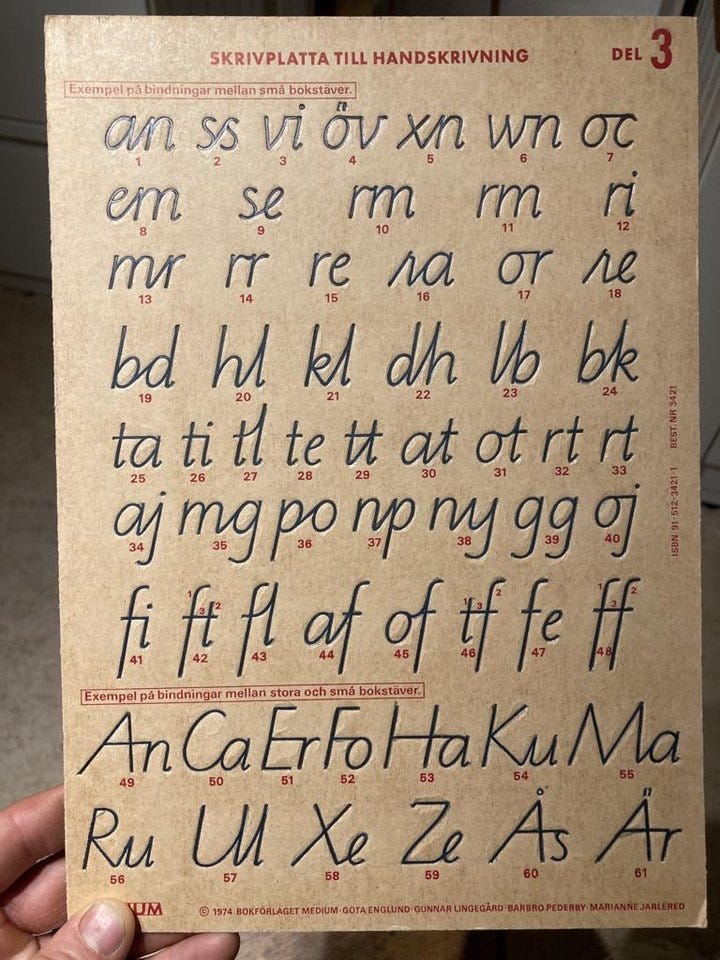 SKRIVPLATTA TILL HANDSKRIVNING DEL 3
Exempel på bindningar mellan små bokstäver.
an ss vi öv xn wn oc
1 2 3 4 5 6 7
em se rm rm ri
8 9 10 11 12
mr rr re ra or re
13 14 15 16 17 18
bd hl kl dh lb bk
19 20 21 22 23 24
ta ti tl te tt at ot rt rt
25 26 27 28 29 30 31 32 33
aj mg po np ny gg oj
34 35 36 37 38 39 40
fi ft fl af of tf fe ff
1 2 3 1 2 3 1 2 3
41 42 43 44 45 46 47 48
Exempel på bindningar mellan stora och små bokstäver.
An Ca Er Fo Ha Ku Ma
49 50 51 52 53 54 55
Ru Ul Xe Ze Ås Är
56 57 58 59 60 61
© 1974 BOKFÖRLAGET MEDIUM · GÖTA ENGLUND · GUNNAR LINGEGÅRD · BARBRO PEDERBY · MARIANNE JARLERED
ISBN 91-512-3421-1 BEST. NR 3421